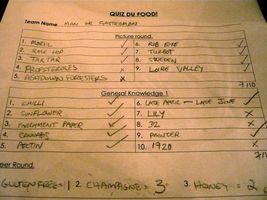 QUIZ DU FOOD!
Team Name MAN OR GASTROMAN
Picture round.
1. MORIL 6. RIB EYE
2. RACE HOP 7. TURBOT
3. TARTAR 8. SWEDEN
4. PROFITEROLES 9. LOIRE VALLEY
5. FORESTERS
7/10
General Knowledge 1
1. CHILLI 6. LATE APRIL - LATE JUNE
2. SUNFLOWER 7. LILY
3. PARCHMENT PAPER 8. 32
4. 9. PAINTER
5. PECTIN 10. 1920
7/1
Beer Round.
GLUTEN FREE - 1 2. CHAMPAGNE - 3 3. HONEY - 2